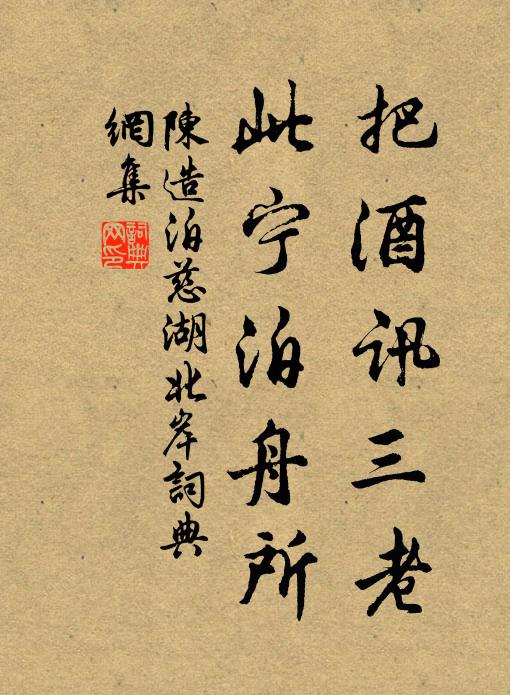 把酒訊三老
此宁泊舟所
陳造泊慈湖北岸詞典
網集
詞典
网印